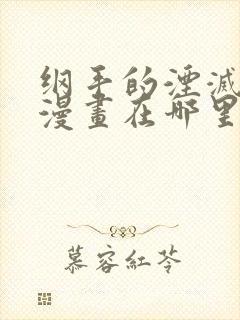 纲手的湮滅
漫畫在哪里
慕容紅苓